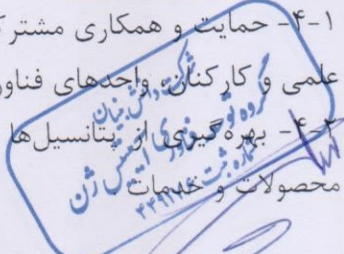 ۴-۱- حمایت و همکاری مشترک
علمی و کارکنان واحدهای فناور
۴-۲- بهره‌گیری از پتانسیل‌ها
محصولات و خدمات.
شرکت دانش بنیان
گروه توسعه فناوری اتیس ژن
شماره ثبت: